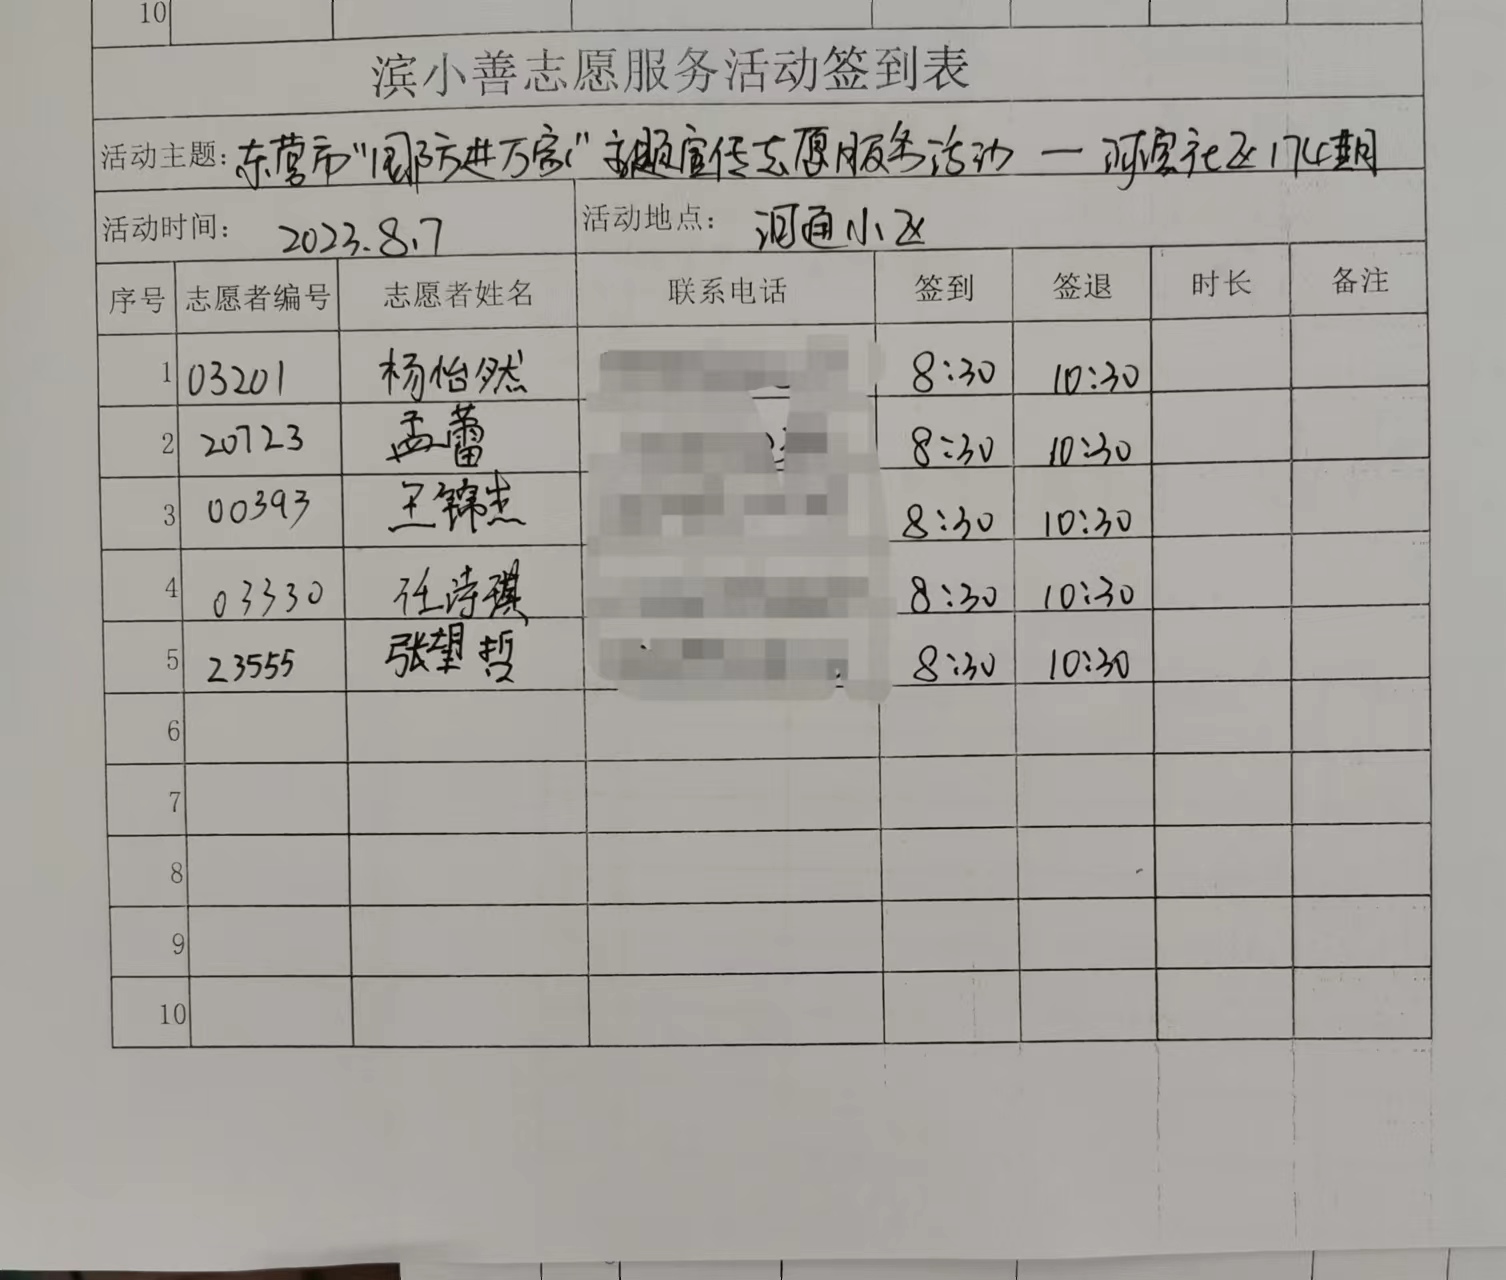 10
滨小善志愿服务活动签到表
活动主题：东营市“国防进万家”主题宣传志愿服务活动 — 河滨社区174期
活动时间： 2023.8.7 活动地点： 河通小区
序号 志愿者编号 志愿者姓名 联系电话 签到 签退 时长 备注
1 03201 杨怡然 8:30 10:30
2 20723 孟蕾 8:30 10:30
3 00393 王锦杰 8:30 10:30
4 03330 任诗琪 8:30 10:30
5 23555 张望哲 8:30 10:30
6
7
8
9
10